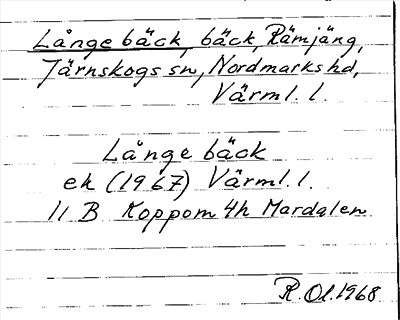 Långe bäck, bäck, Rämjäng,
Järnskogs sn, Nordmarks hd,
Värml. l.
Långe bäck
ek (1967) Värml. l.
11 B Koppom 4h Mardalen
R. Ol. 1968